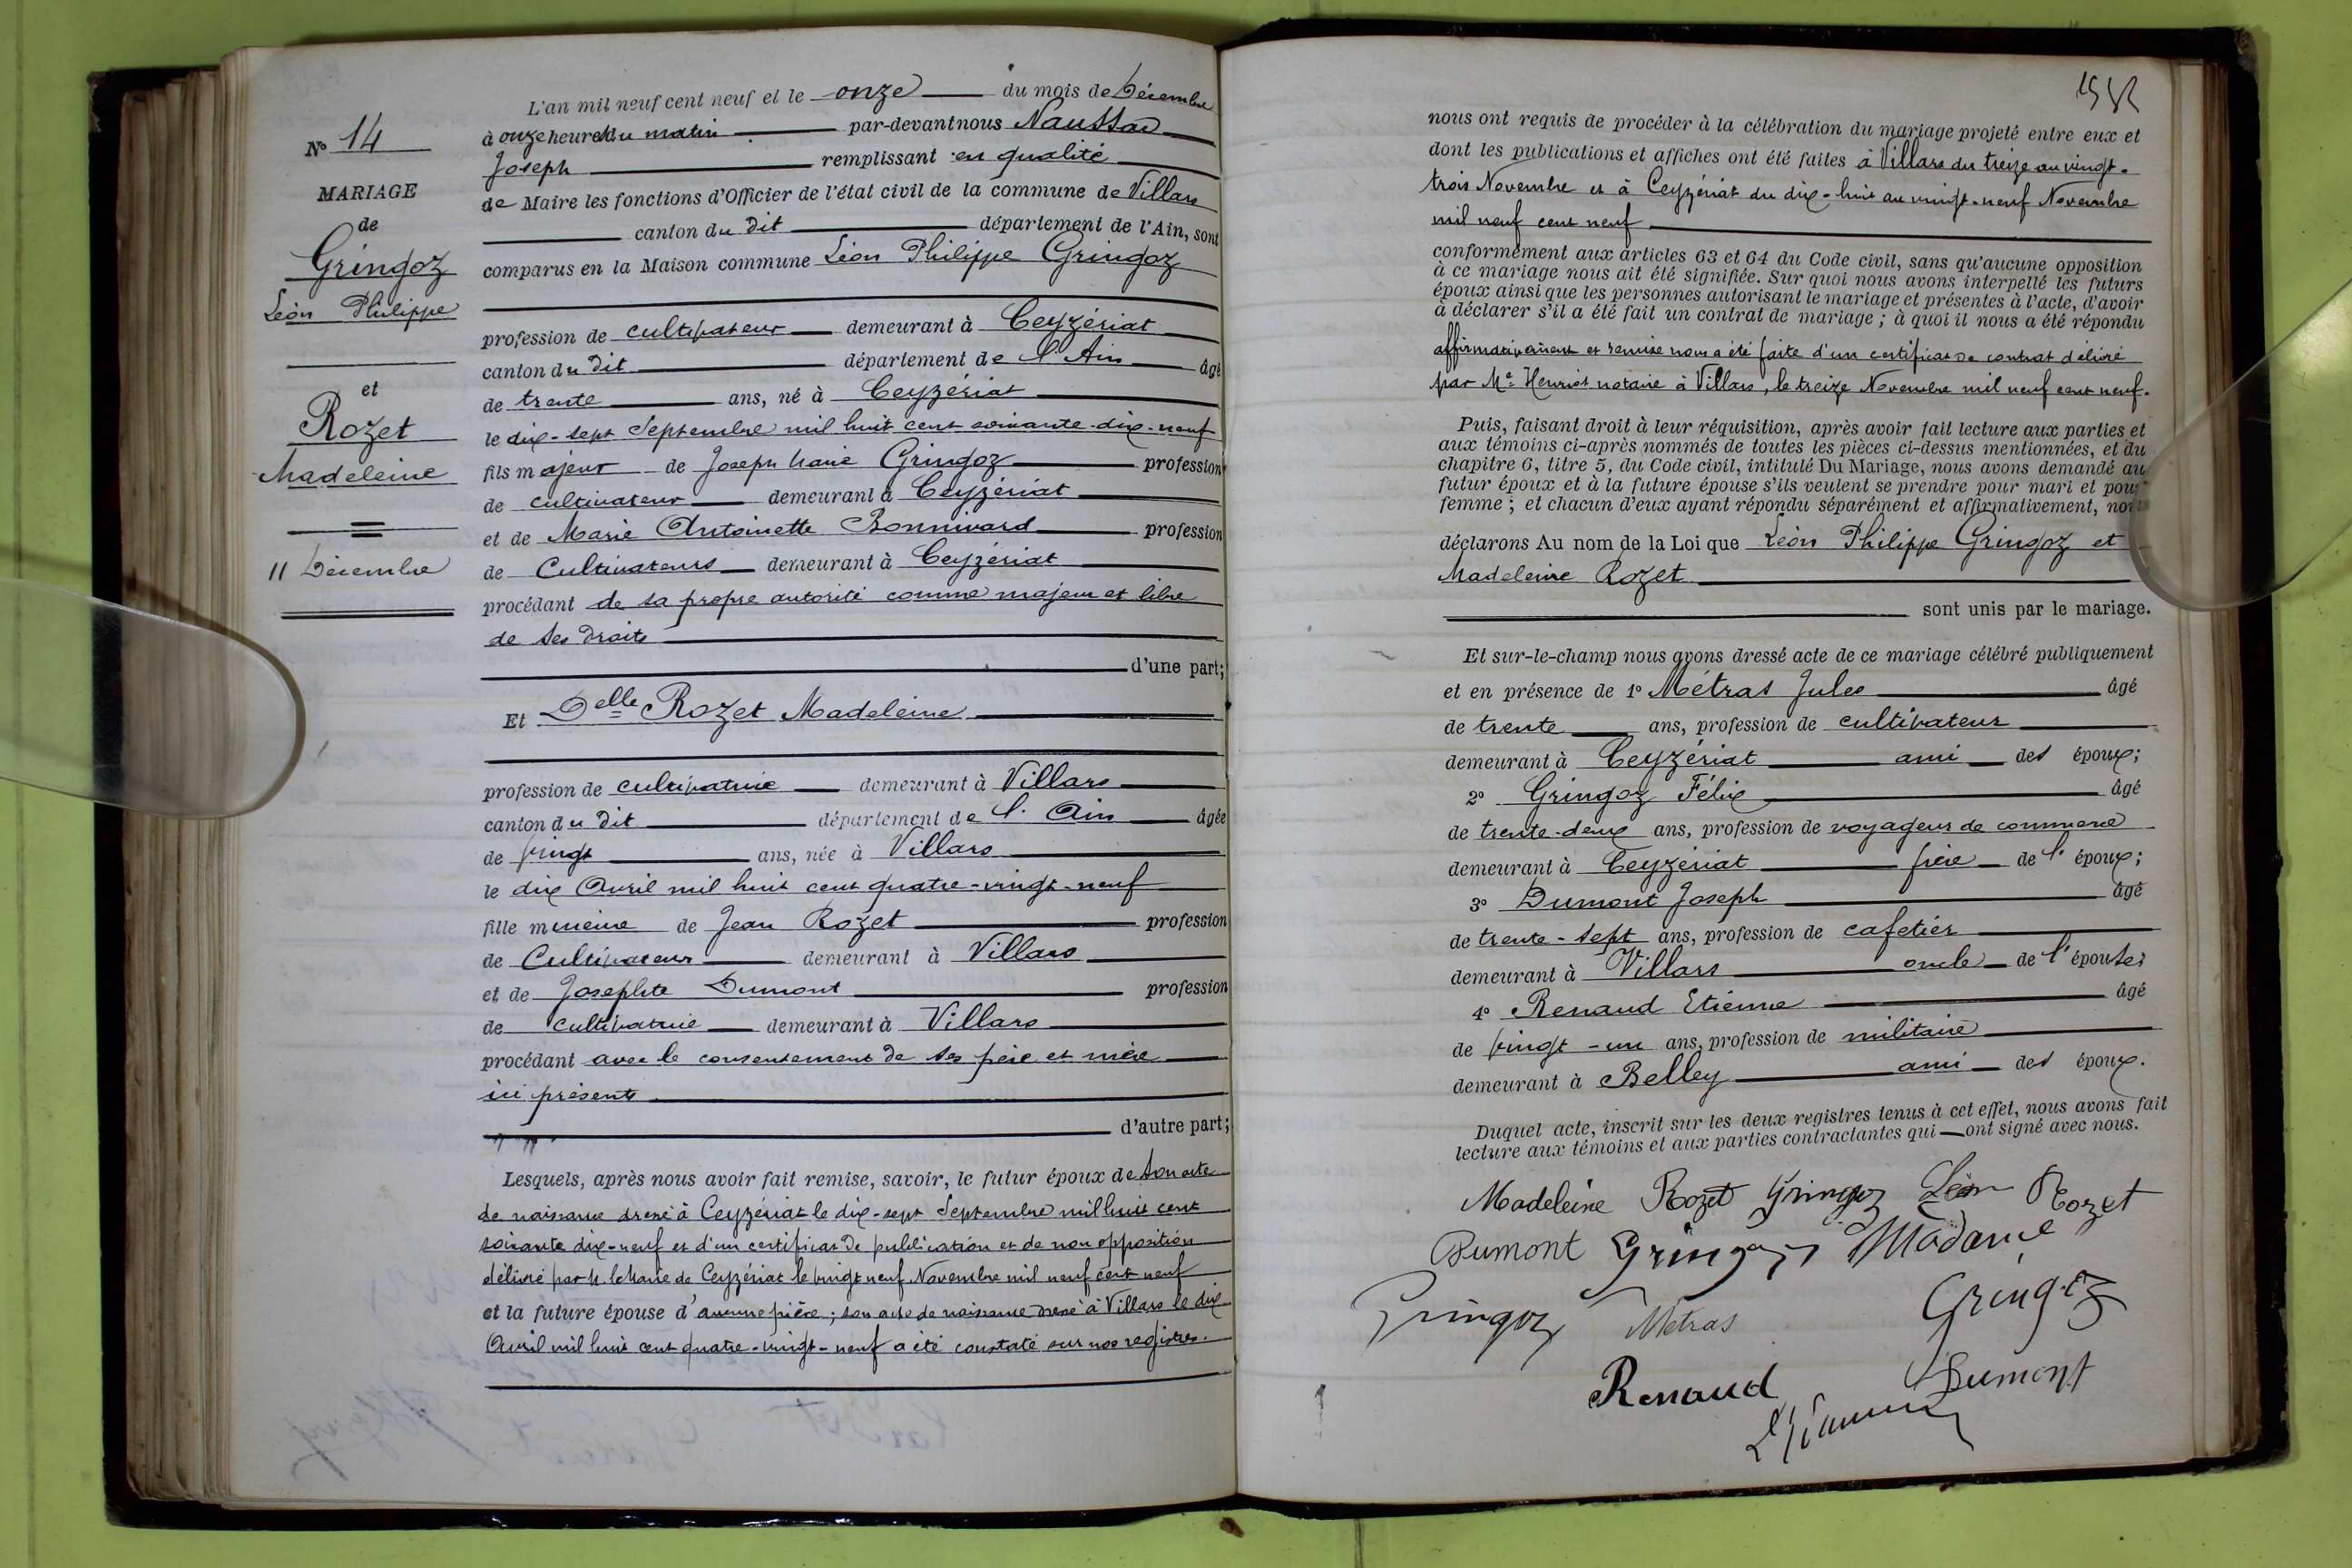 N° 14
MARIAGE
de
Gringoz
Léon Philippe
et
Rozet
Madeleine
11 Décembre
L'an mil neuf cent neuf et le onze du mois de Décembre
à onze heures du matin par-devant nous
Joseph remplissant en qualité
de Maire les fonctions d'Officier de l'état civil de la commune de Villars
canton du dit département de l'Ain, sont
comparus en la Maison commune Léon Philippe Gringoz
profession de cultivateur demeurant à Ceyzériat
canton du dit département de l'Ain âgé
de trente ans, né à Ceyzériat
le dix-sept Septembre mil huit cent soixante-dix-neuf
fils majeur de Joseph Marie Gringoz profession
de cultivateur demeurant à Ceyzériat
et de Marie Antoinette Bonnivard profession
de Cultivateurs demeurant à Ceyzériat
procédant de sa propre autorité comme majeur et libre
de ses droits
d'une part;
Et Delle Rozet Madeleine
profession de cultivatrice demeurant à Villars
canton du dit département de l'Ain âgée
de vingt ans, née à Villars
le dix Avril mil huit cent quatre-vingt-neuf
fille mineure de Jean Rozet profession
de Cultivateur demeurant à Villars
et de Josephte Dumont profession
de cultivatrice demeurant à Villars
procédant avec le consentement de ses père et mère
ici présents
d'autre part;
Lesquels, après nous avoir fait remise, savoir, le futur époux de son acte
de naissance dressé à Ceyzériat le dix-sept Septembre mil huit cent
soixante dix-neuf et d'un certificat de publication et de non opposition
délivré par M. le Maire de Ceyzériat le vingt neuf Novembre mil neuf cent neuf
et la future épouse d'aucune pièce; son acte de naissance dressé à Villars le dix
Avril mil huit cent quatre-vingt-neuf a été constaté sur nos registres.
nous ont requis de procéder à la célébration du mariage projeté entre eux et
dont les publications et affiches ont été faites à Villars du treize au vingt-
trois Novembre et à Ceyzériat du dix-huit au vingt-neuf Novembre
mil neuf cent neuf
conformément aux articles 63 et 64 du Code civil, sans qu'aucune opposition
à ce mariage nous ait été signifiée. Sur quoi nous avons interpellé les futurs
époux ainsi que les personnes autorisant le mariage et présentes à l'acte, d'avoir
à déclarer s'il a été fait un contrat de mariage; à quoi il nous a été répondu
affirmativement et remise nous a été faite d'un certificat de contrat délivré
par Me Henriot notaire à Villars, le treize Novembre mil neuf cent neuf.
Puis, faisant droit à leur réquisition, après avoir fait lecture aux parties et
aux témoins ci-après nommés de toutes les pièces ci-dessus mentionnées, et du
chapitre 6, titre 5, du Code civil, intitulé Du Mariage, nous avons demandé au
futur époux et à la future épouse s'ils veulent se prendre pour mari et pour
femme; et chacun d'eux ayant répondu séparément et affirmativement, nous
déclarons Au nom de la Loi que Léon Philippe Gringoz et
Madeleine Rozet
sont unis par le mariage.
Et sur-le-champ nous avons dressé acte de ce mariage célébré publiquement
et en présence de 1° Métras Jules âgé
de trente ans, profession de cultivateur
demeurant à Ceyzériat ami des époux;
2° Gringoz Félix âgé
de trente-deux ans, profession de voyageur de commerce
demeurant à Ceyzériat frère de l'époux;
3° Dumont Joseph âgé
de trente-sept ans, profession de cafetier
demeurant à Villars oncle de l'épouse;
4° Renaud Etienne âgé
de vingt-un ans, profession de militaire
demeurant à Belley ami des époux.
Duquel acte, inscrit sur les deux registres tenus à cet effet, nous avons fait
lecture aux témoins et aux parties contractantes qui ont signé avec nous.
Madeleine Rozet Gringoz Léon Rozet
Dumont Gringoz Madame
Gringoz Metras Gringoz
Renaud Dumont